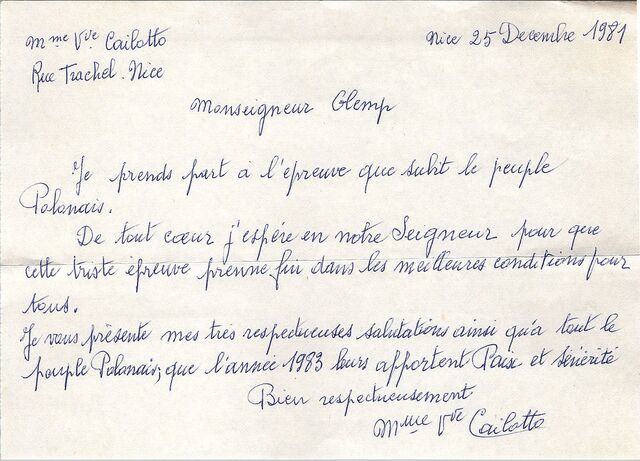 Mme Vve Cailotto
Nice 25 Decembre 1981
Rue Trachel. Nice
Monseigneur Glemp
Je prends part à l'épreuve que subit le peuple
Polonais.
De tout cœur j'espère en notre Seigneur pour que
cette triste épreuve prenne fin dans les meilleures conditions pour
tous.
Je vous présente mes très respectueuses salutations ainsi qu'à tout le
peuple Polonais; que l'année 1983 leurs apportent Paix et Sérérité
Bien respectueusement
Mme Vve Cailotto